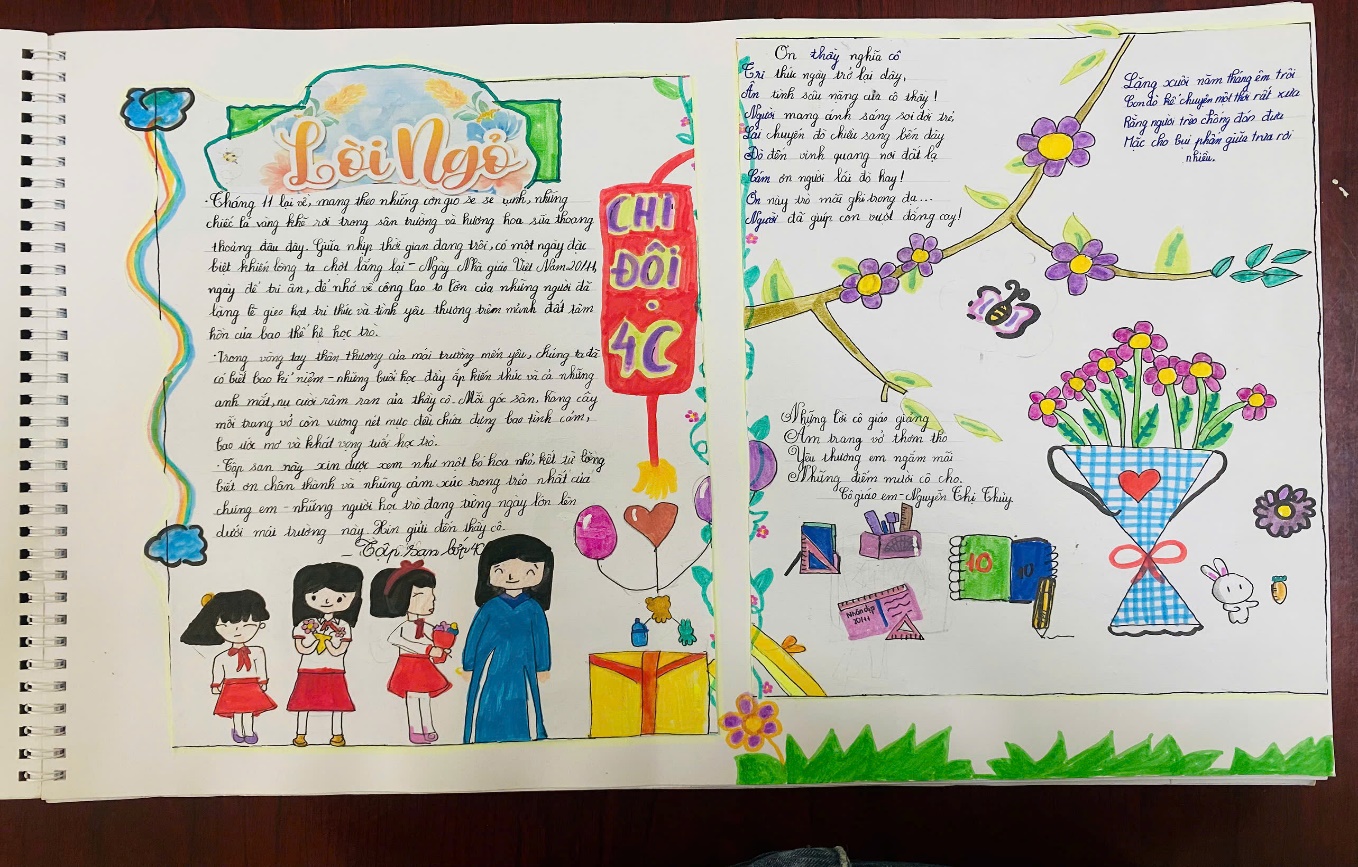 Lời Ngỏ
Tháng 11 lại về, mang theo những cơn gió se se lạnh, những
chiếc lá vàng khẽ rơi trong sân trường và hương hoa sữa thoang
thoảng đâu đây. Giữa nhịp thời gian đang trôi, có một ngày đặc
biệt khiến lòng ta chợt lắng lại - Ngày Nhà giáo Việt Nam 20/11,
ngày để tri ân, để nhớ về công lao to lớn của những người đã
lặng lẽ gieo hạt tri thức và tình yêu thương trên mảnh đất tâm
hồn của bao thế hệ học trò.
Trong vòng tay thân thương của mái trường mến yêu, chúng ta đã
có biết bao kỉ niệm - những buổi học đầy ắp kiến thức và cả những
ánh mắt, nụ cười rậm ran của thầy cô. Mỗi góc sân, hàng cây
mỗi trang vở còn vương nét mực đều chứa đựng bao tình cảm,
bao ước mơ và khát vọng tuổi học trò.
Tập san này xin được xem như một bó hoa nhỏ, kết từ lòng
biết ơn chân thành và những cảm xúc trong trẻo nhất của
chúng em - những người học trò đang từng ngày lớn lên
dưới mái trường này. Xin gửi đến thầy cô.
- Tập san lớp 4C
CHI
ĐỘI
4C
Ơn thầy nghĩa cô
Tri thức ngày trở lại đây,
Ân tình sâu nặng của cô thầy!
Người mang ánh sáng soi đời trẻ
Lái chuyến đò chiều sang bến đây
Đò đến vinh quang nơi đất lạ
Cám ơn người lái đò hay!
Ơn này trò mãi ghi trong dạ...
Người đã giúp con vượt đắng cay!
Lặng xuôi năm tháng êm trôi
Con đò kể chuyện một thời rất xưa
Rằng người trèo chống đón đưa
Mặc cho bụi phấn giữa trưa rơi
nhiều.
Những lời cô giáo giảng
Ấm trang vở thơm tho
Yêu thương em ngắm mãi
Những điểm mười cô cho.
Cô giáo em - Nguyễn Thị Thủy
10
10
20/11